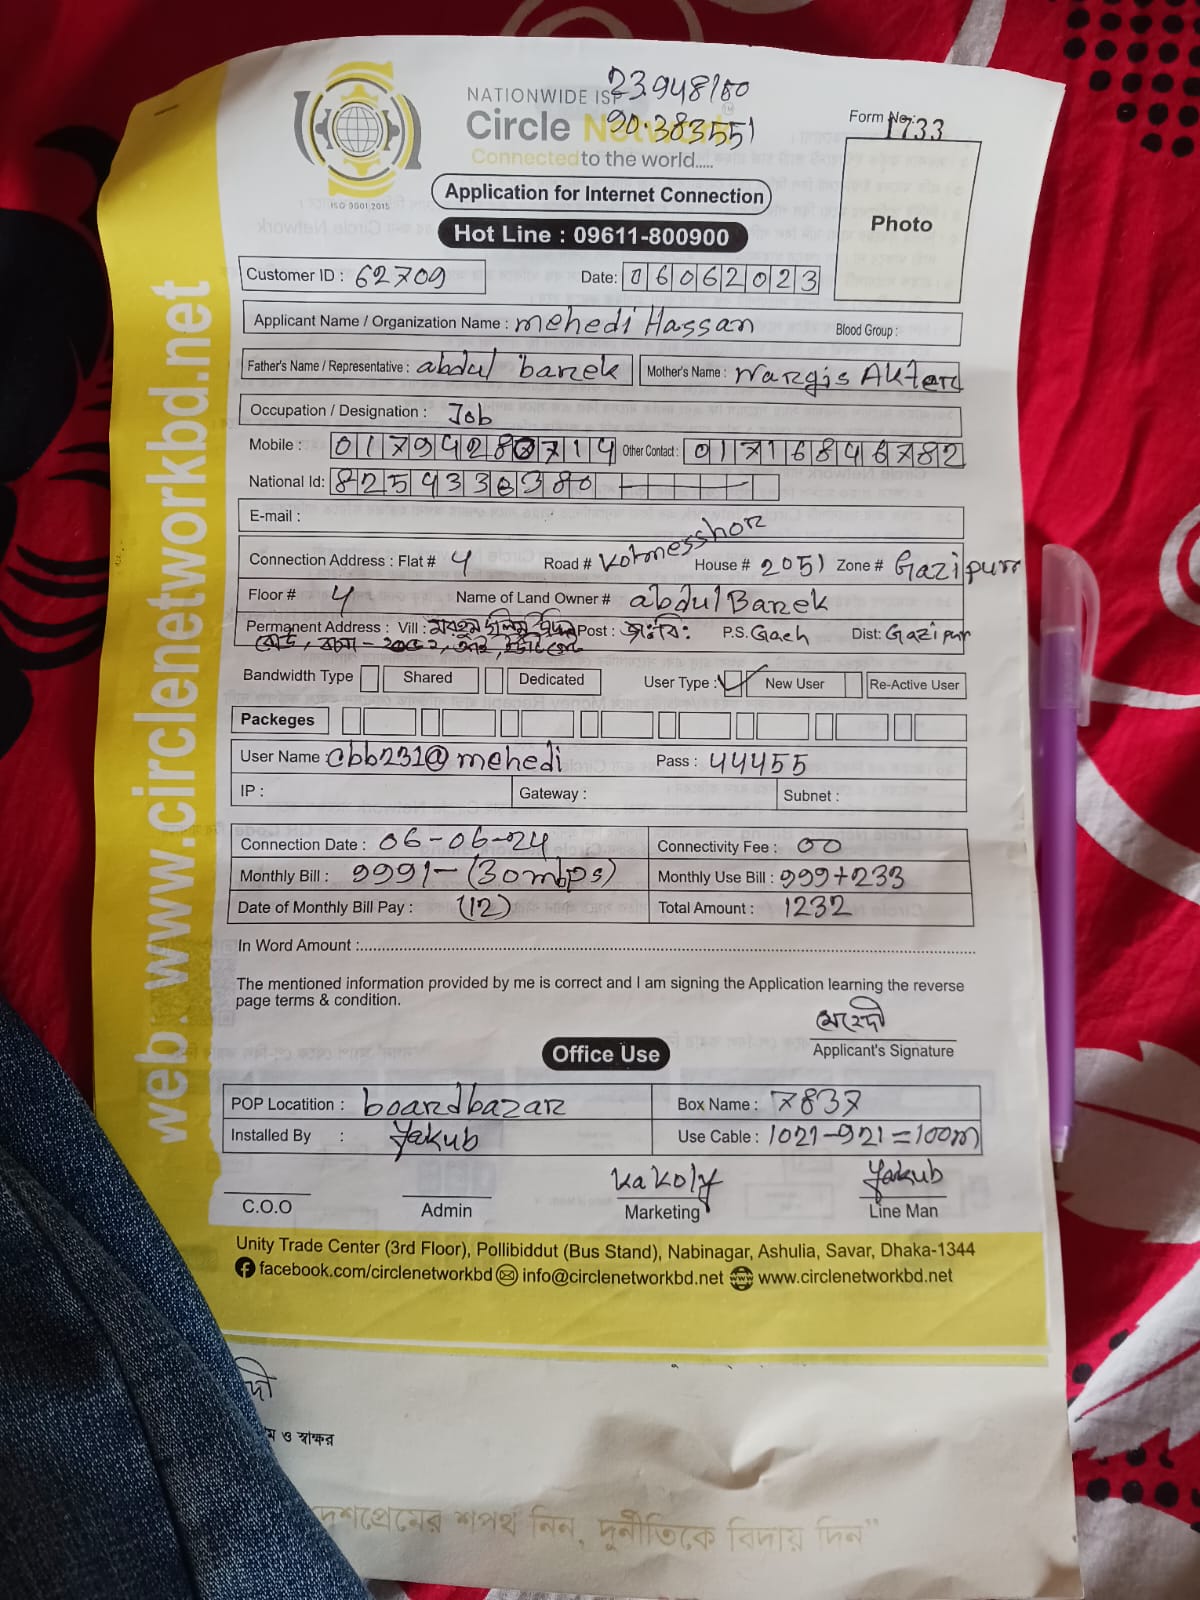 NATIONWIDE ISP
23.948100
Circle Network
90.383551
Connected to the world.....
ISO 9001:2015
Form No: 1733
Application for Internet Connection
Photo
Hot Line : 09611-800900
web: www.circlenetworkbd.net
Customer ID : 62709
Date: 06062023
Applicant Name / Organization Name : mehedi Hassan Blood Group :
Father's Name / Representative : abdul barek Mother's Name : Nargis Akter
Occupation / Designation : Job
Mobile : 01794280714 Other Contact : 01716846782
National Id: 8259433038
E-mail :
Connection Address : Flat # 4 Road # House # 2051 Zone # Gazipur
Floor # 4 Name of Land Owner # abdul Barek
Permanent Address : Vill : Post : জাঃবিঃ P.S. Gach Dist: Gazipur
Bandwidth Type Shared Dedicated User Type : ✓ New User Re-Active User
Packeges
User Name cbb231@mehedi Pass : 44455
IP : Gateway : Subnet :
Connection Date : 06-06-24 Connectivity Fee : 00
Monthly Bill : 999/- (30mbps) Monthly Use Bill : 999+233
Date of Monthly Bill Pay : (12) Total Amount : 1232
In Word Amount :
The mentioned information provided by me is correct and I am signing the Application learning the reverse
page terms & condition.
মেহেদী
Applicant's Signature
Office Use
POP Locatition : boardbazar Box Name : 7837
Installed By : Yakub Use Cable : 1021-921=100m
Kakoly Yakub
C.O.O Admin Marketing Line Man
Unity Trade Center (3rd Floor), Pollibiddut (Bus Stand), Nabinagar, Ashulia, Savar, Dhaka-1344
facebook.com/circlenetworkbd info@circlenetworkbd.net www.circlenetworkbd.net
ও স্বাক্ষর
দেশপ্রেমের শপথ নিন, দুর্নীতিকে বিদায় দিন"